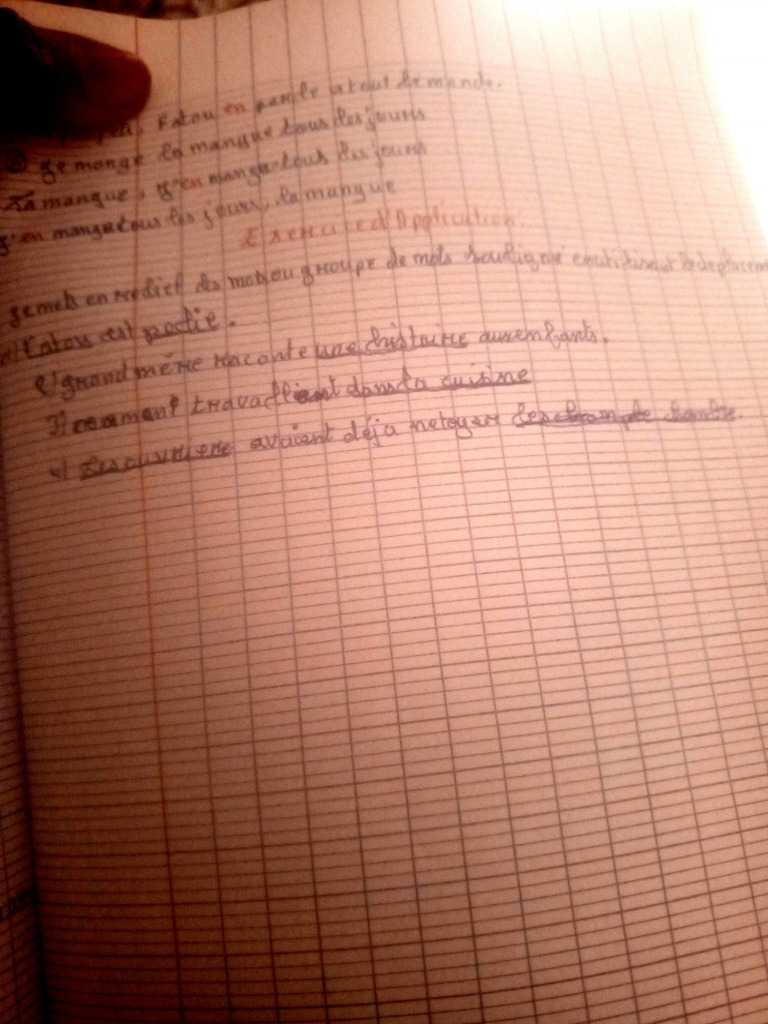 Fatou en parle a tout le monde.
Je mange la mangue tous les jours
La mangue, j'en mange tous les jours
j'en mange tous les jours, la mangue
Exercice d'Application
Je mets en relief des mots ou groupe de mots souligné en utilisant le deplacement
Fatou est polie.
2) grand mére raconte une histoire aux enfants.
3) maman travaillent dans la cuisine
4) Les ouvriere avaient déja netoyer les chambre.